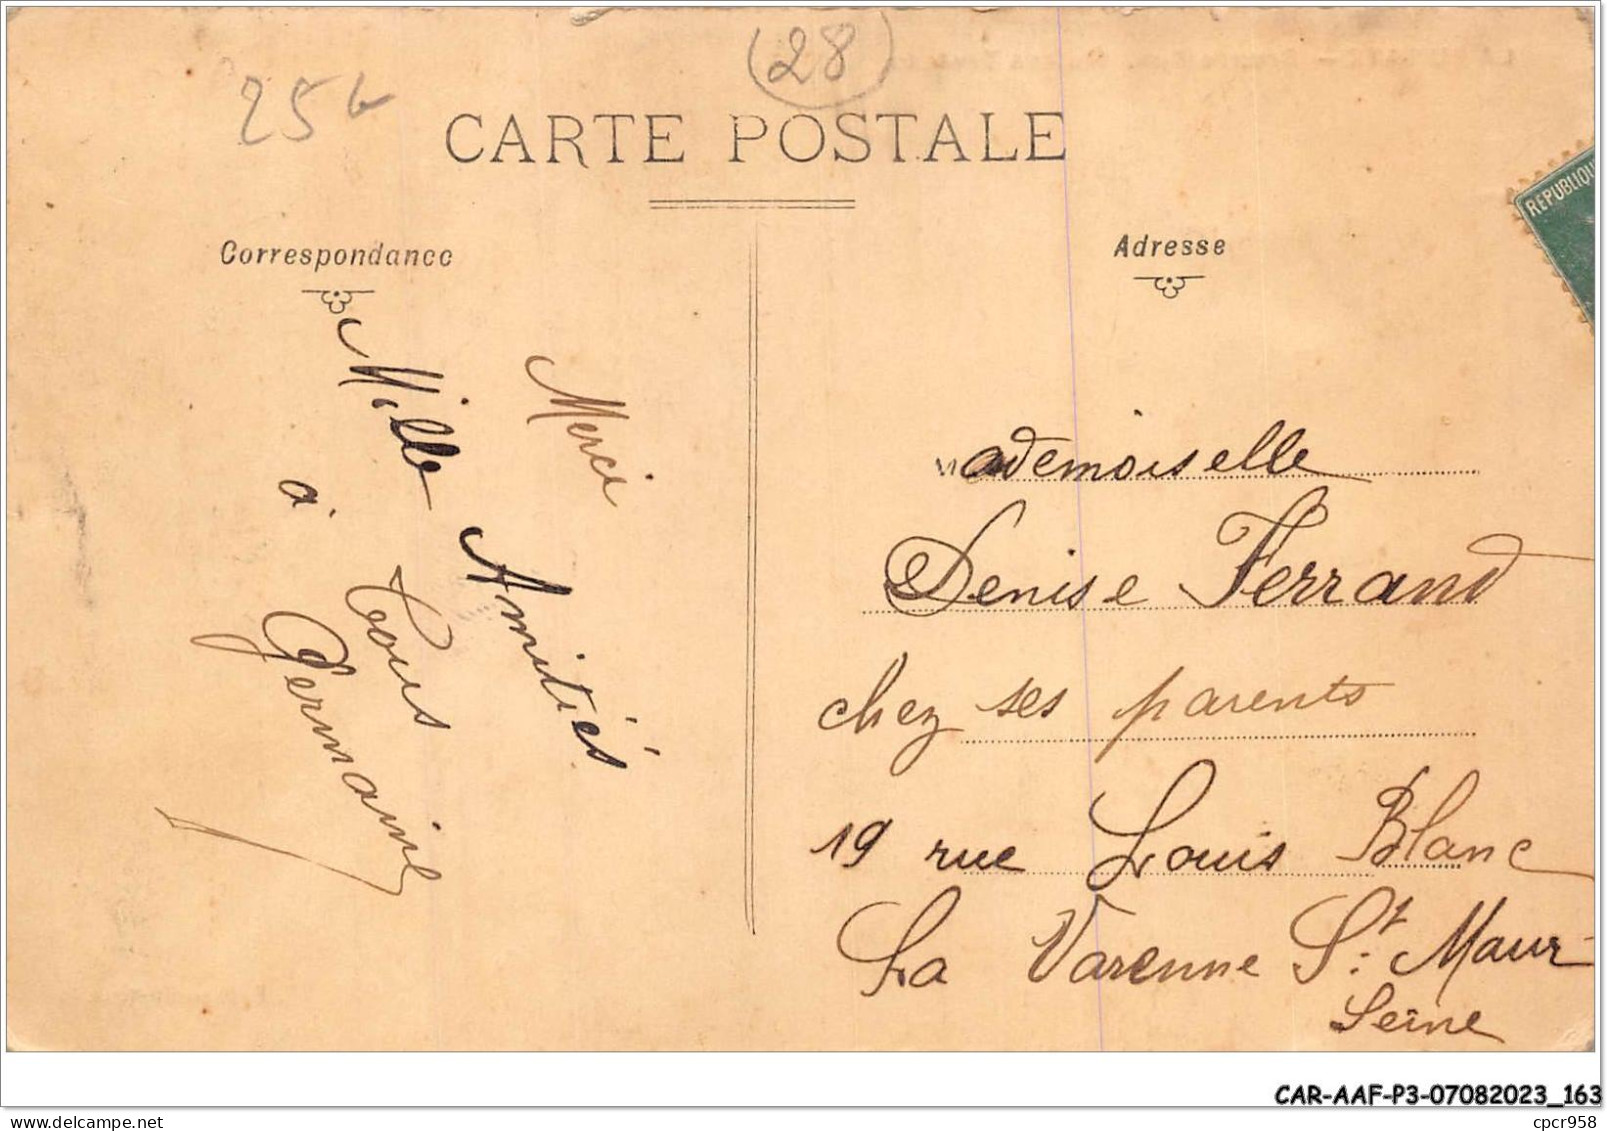 (28)
25
CARTE POSTALE
Correspondance
Adresse
REPUBLIQU
Merci
Mille Amitiés
à Tous
Germaine
Mademoiselle
Denise Ferrand
chez ses parents
19 rue Louis Blanc
La Varenne St: Maur
Seine
CAR-AAF-P3-07082023_163
delcampe.net
cpcr958